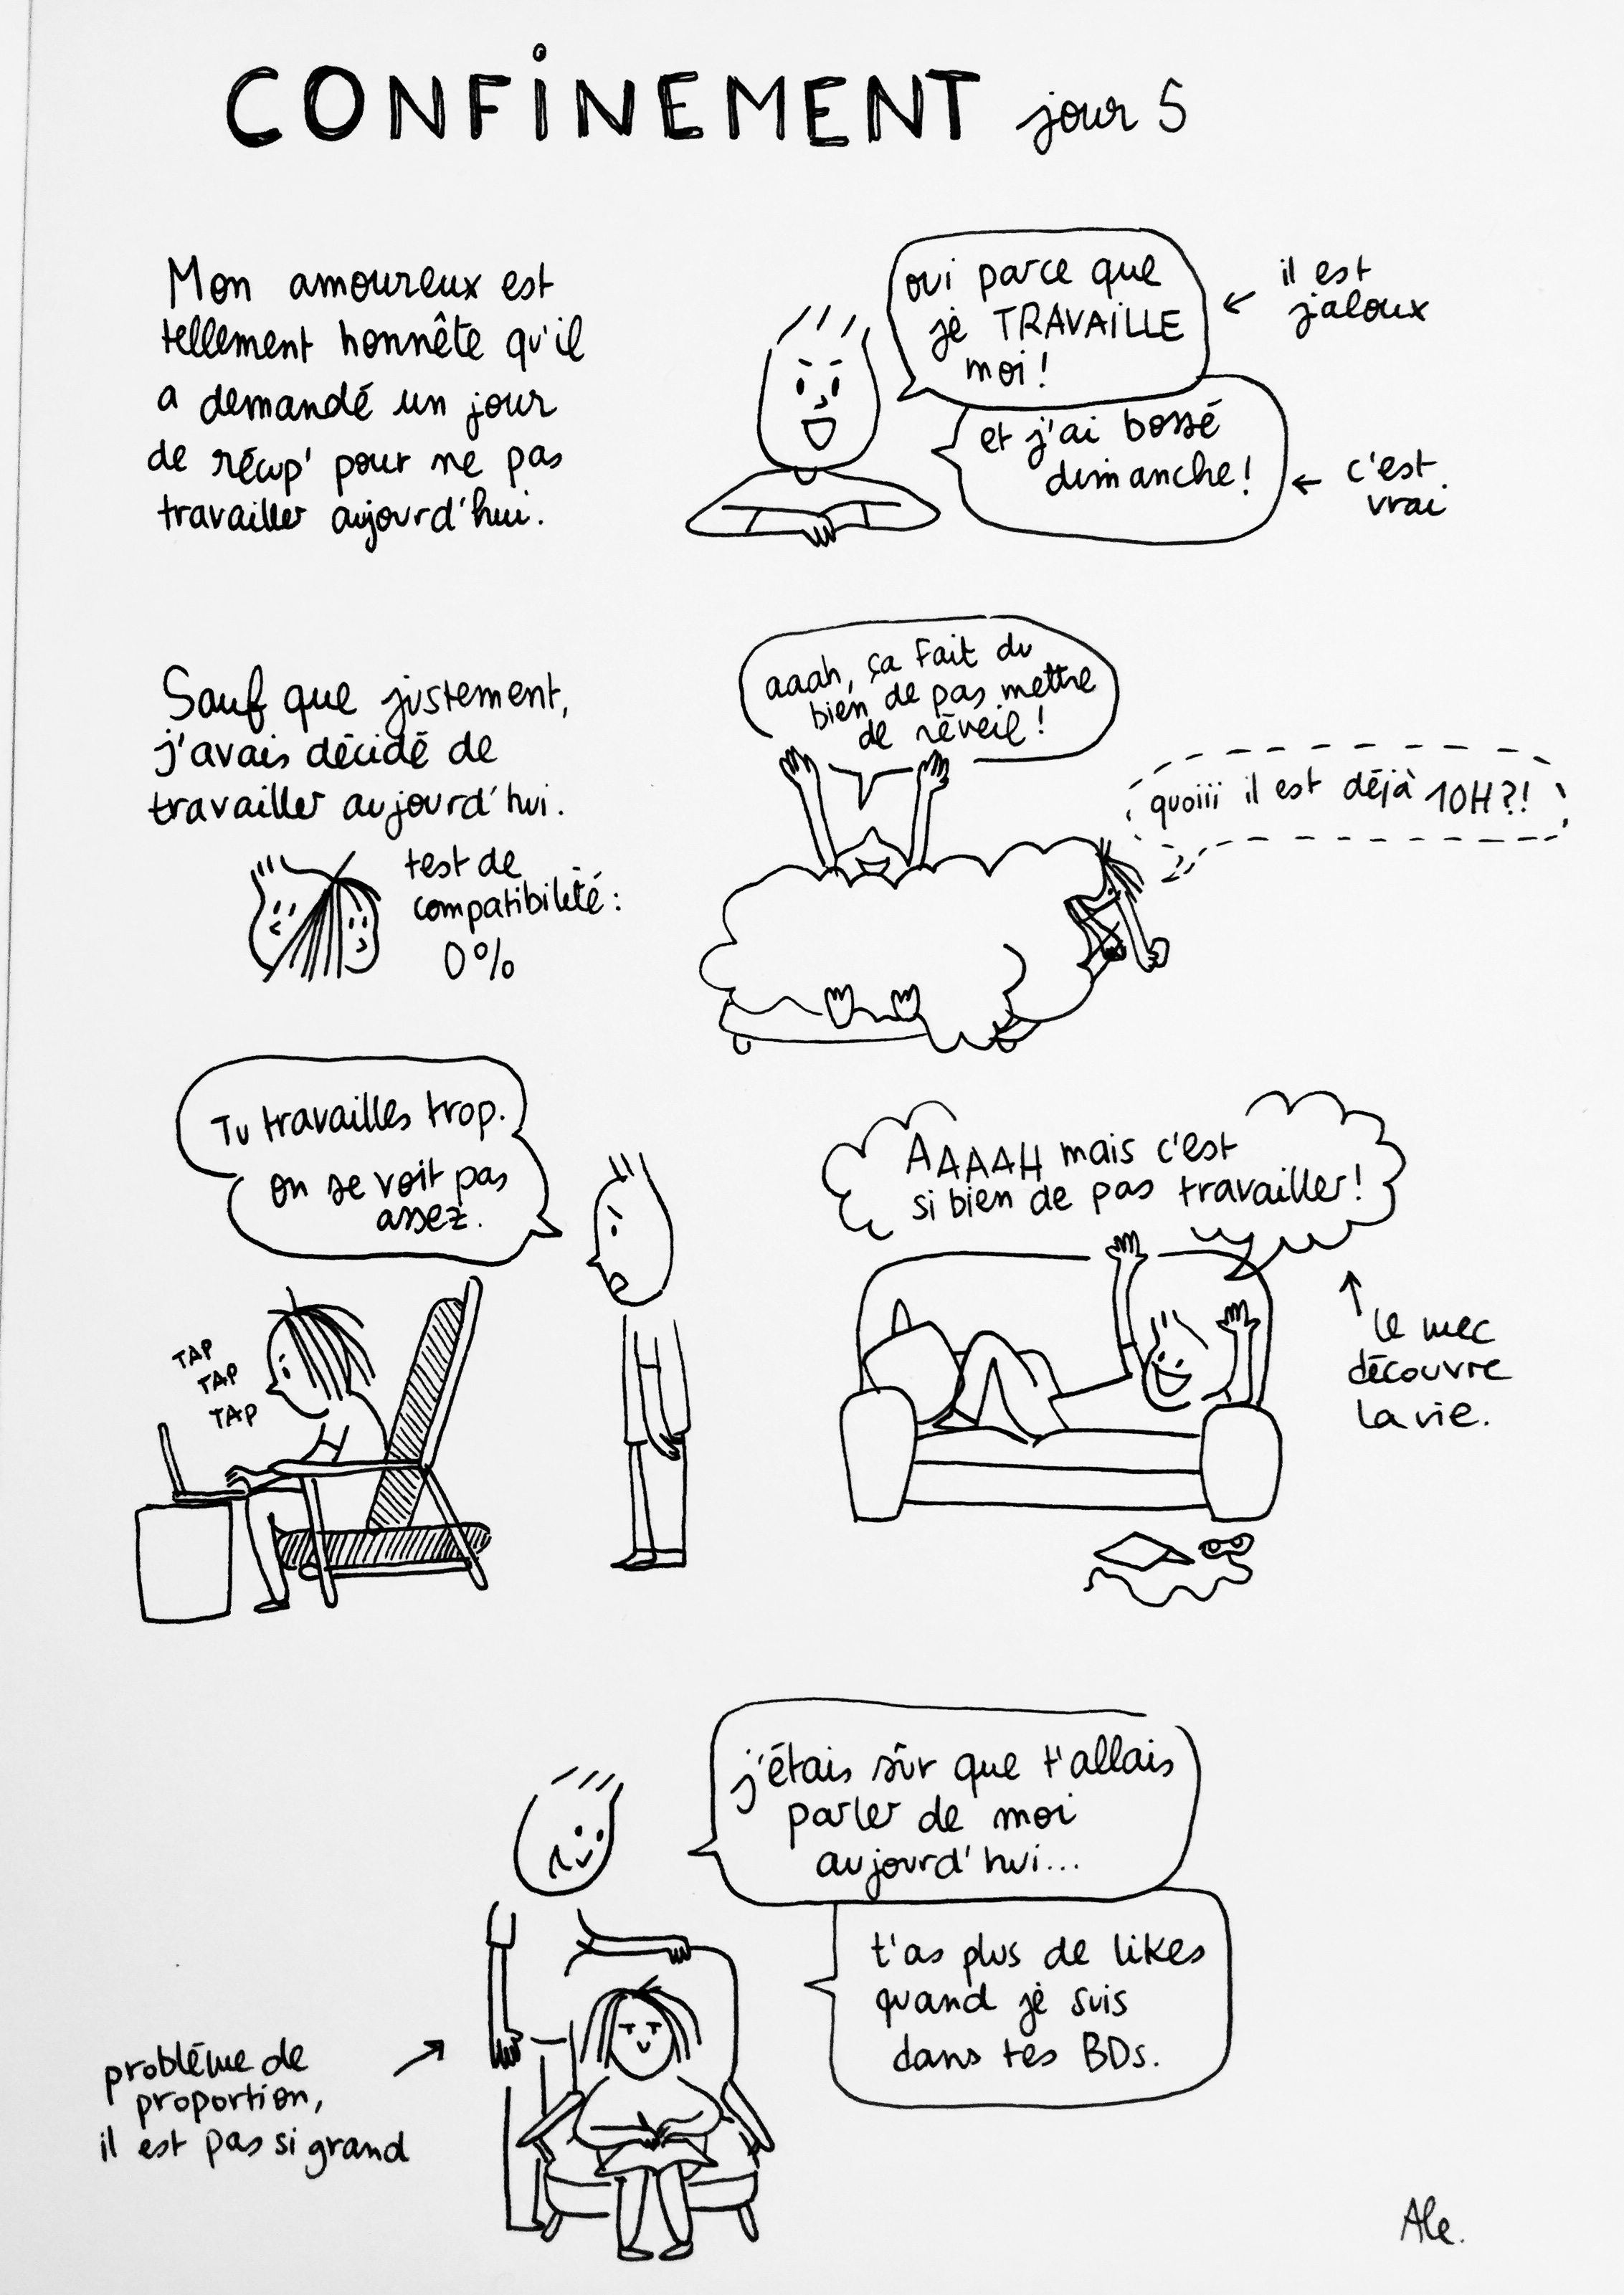 CONFINEMENT jour 5
Mon amoureux est
tellement honnête qu'il
a demandé un jour
de récup' pour ne pas
travailler aujourd'hui.
oui parce que
je TRAVAILLE
moi !
il est
jaloux
et j'ai bossé
dimanche !
c'est
vrai
Sauf que justement,
j'avais décidé de
travailler aujourd'hui.
test de
compatibilité :
0%
aaah, ça fait du
bien de pas mettre
de réveil !
quoiii il est déjà 10H ?!
Tu travailles trop.
on se voit pas
assez.
TAP
TAP
TAP
AAAAH mais c'est
si bien de pas travailler !
le mec
découvre
la vie.
j'étais sûr que t'allais
parler de moi
aujourd'hui...
t'as plus de likes
quand je suis
dans tes BDs.
problème de
proportion,
il est pas si grand
Ale.